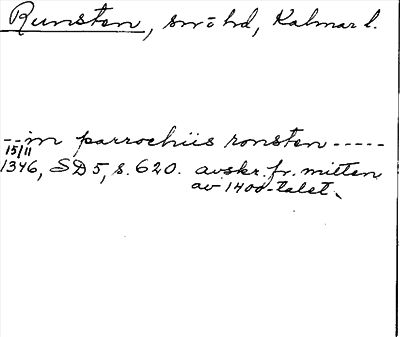 Runsten, sn o hd, Kalmar l.
--in parrochiis ronsten -----
15/11
1346, SD 5, s. 620. avskr. fr. mitten
av 1400-talet.